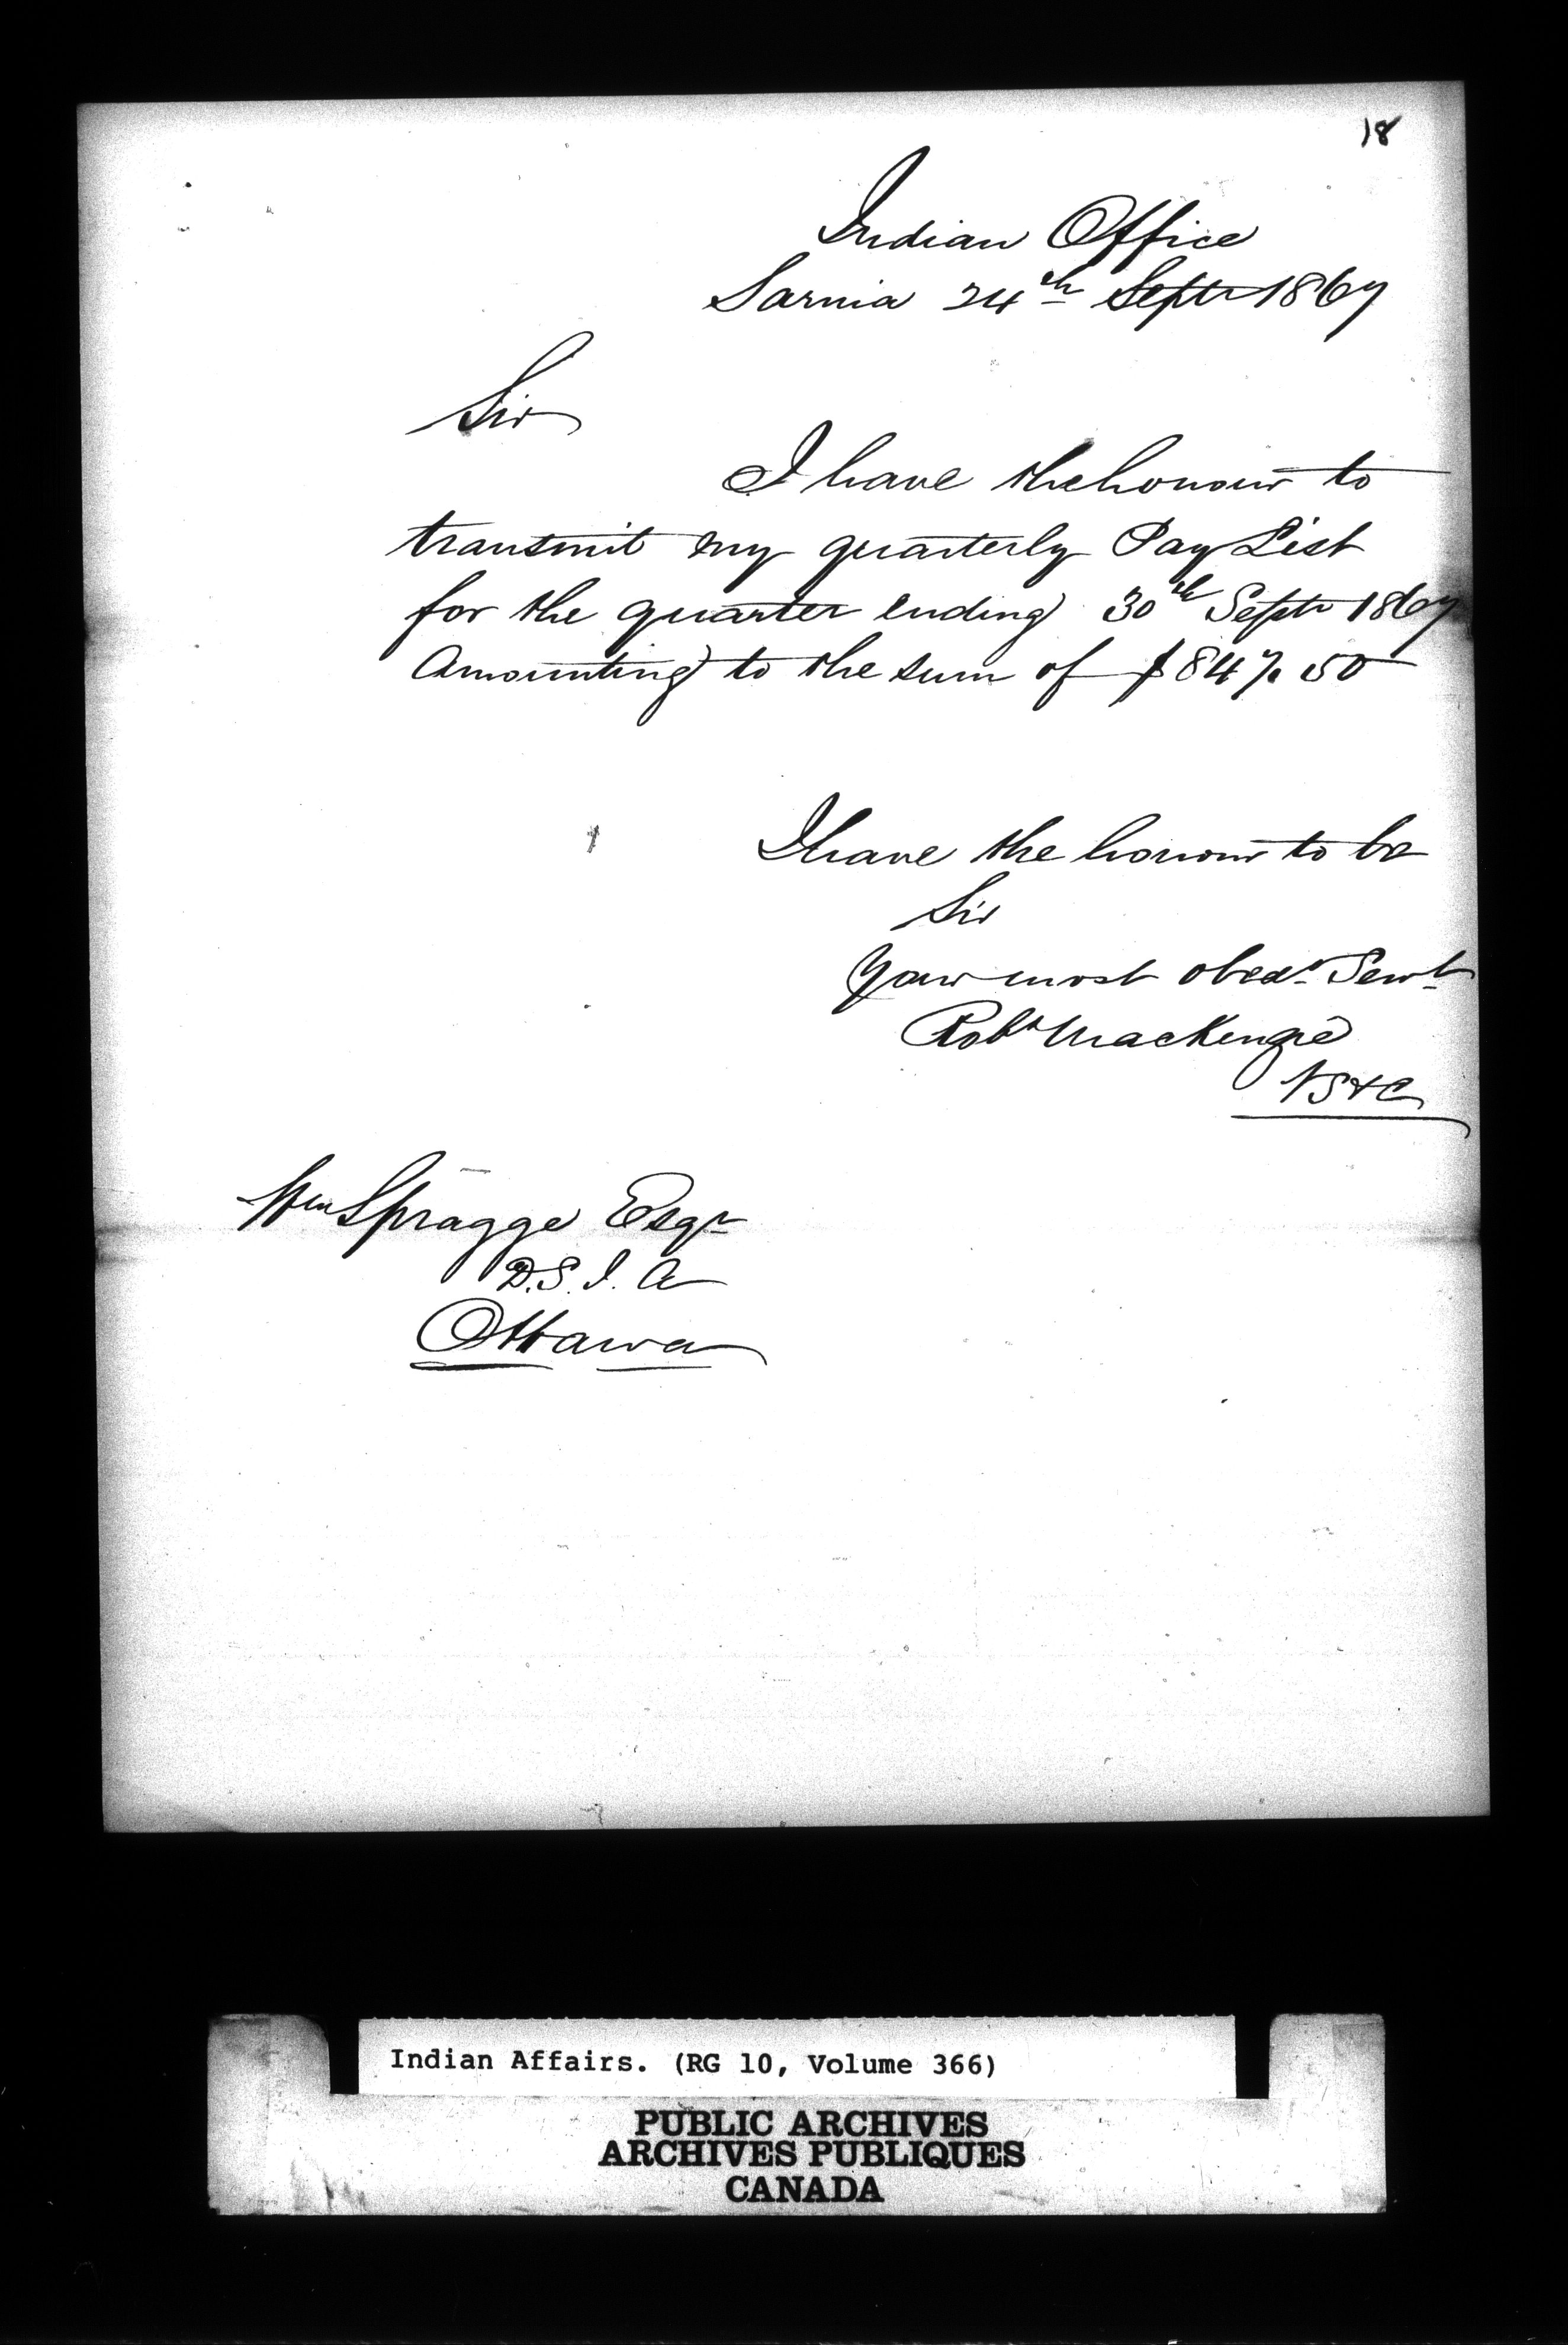 18
Indian Office
Sarnia 24th Septr 1867
Sir
I have the honour to
transmit my quarterly Pay List
for the quarter ending 30th Septr 1867
Amounting to the sum of $847.50
I have the honour to be
Sir
Your most obedt Servt
Robt MacKenzie
Wm Spragge Esqr
D.S.I.A
Ottawa
Indian Affairs. (RG 10, Volume 366)
PUBLIC ARCHIVES
ARCHIVES PUBLIQUES
CANADA